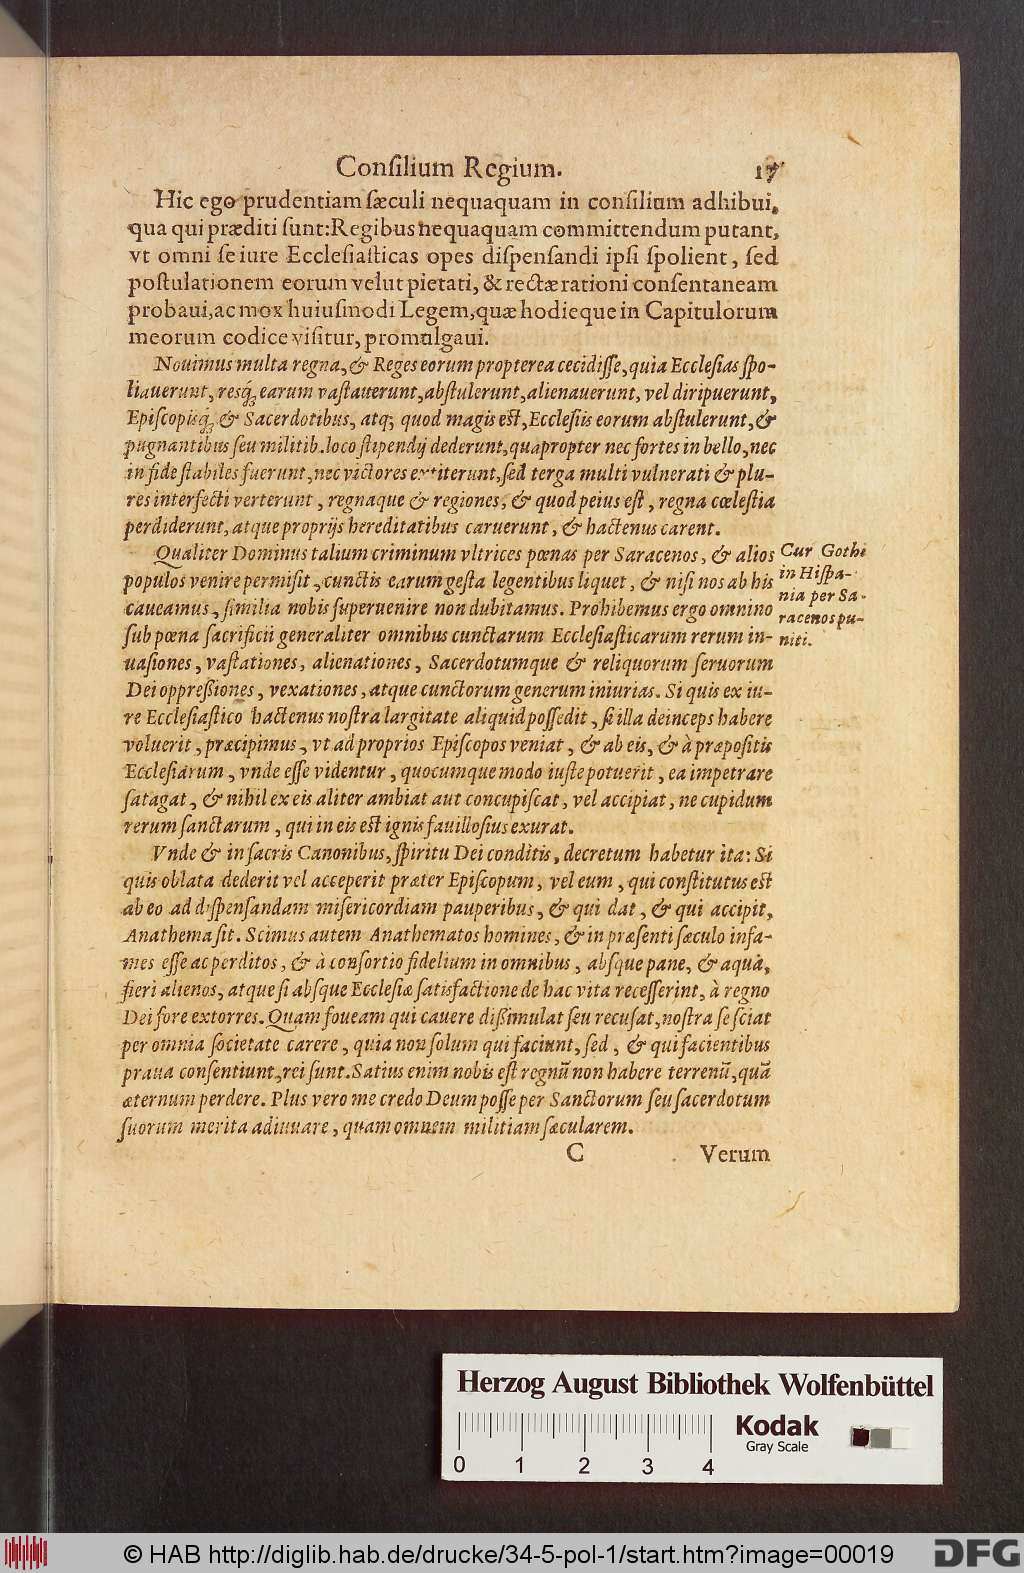 Conſilium Regium. 17
Hic ego prudentiam ſæculi nequaquam in conſilium adhibui,
qua qui præditi ſunt: Regibus nequaquam committendum putant,
vt omni ſe iure Eccleſiaſticas opes diſpenſandi ipſi ſpolient, ſed
poſtulationem eorum velut pietati, & rectæ rationi conſentaneam
probaui, ac mox huiuſmodi Legem, quæ hodieque in Capitulorum
meorum codice viſitur, promulgaui.
Nouimus multa regna, & Reges eorum propterea cecidiſſe, quia Eccleſias ſpo-
liauerunt, resq́; earum vaſtauerunt, abſtulerunt, alienauerunt, vel diripuerunt,
Epiſcopisq́; & Sacerdotibus, atq; quod magis eſt, Eccleſiis eorum abſtulerunt, &
pugnantibus ſeu militib. loco ſtipendij dederunt, quapropter nec fortes in bello, nec
in fide ſtabiles fuerunt, nec victores extiterunt, ſed terga multi vulnerati & plu-
res interfecti verterunt, regnaque & regiones, & quod peius eſt, regna cœleſtia
perdiderunt, atque proprijs hereditatibus caruerunt, & hactenus carent.
Qualiter Dominus talium criminum vltrices pœnas per Saracenos, & alios
populos venire permiſit, cunctis earum geſta legentibus liquet, & niſi nos ab his
caueamus, ſimilia nobis ſuperuenire non dubitamus. Prohibemus ergo omnino
ſub pœna ſacrificii generaliter omnibus cunctarum Eccleſiaſticarum rerum in-
uaſiones, vaſtationes, alienationes, Sacerdotumque & reliquorum ſeruorum
Dei oppreßiones, vexationes, atque cunctorum generum iniurias. Si quis ex iu-
re Eccleſiaſtico hactenus noſtra largitate aliquid poſſedit, ſi illa deinceps habere
voluerit, præcipimus, vt ad proprios Epiſcopos veniat, & ab eis, & à præpoſitis
Eccleſiarum, vnde eſſe videntur, quocumque modo iuſte potuerit, ea impetrare
ſatagat, & nihil ex eis aliter ambiat aut concupiſcat, vel accipiat, ne cupidum
rerum ſanctarum, qui in eis eſt ignis fauilloſius exurat.
Cur Gothi
in Hiſpa-
nia per Sa-
racenos pu-
niti.
Vnde & in ſacris Canonibus, ſpiritu Dei conditis, decretum habetur ita: Si
quis oblata dederit vel acceperit præter Epiſcopum, vel eum, qui conſtitutus eſt
ab eo ad diſpenſandam miſericordiam pauperibus, & qui dat, & qui accipit,
Anathema ſit. Scimus autem Anathematos homines, & in præſenti ſæculo infa-
mes eſſe ac perditos, & à conſortio fidelium in omnibus, abſque pane, & aqua,
fieri alienos, atque ſi abſque Eccleſiæ ſatisfactione de hac vita receſſerint, à regno
Dei fore extorres. Quam foueam qui cauere dißimulat ſeu recuſat, noſtra ſe ſciat
per omnia ſocietate carere, quia non ſolum qui faciunt, ſed, & qui facientibus
praua conſentiunt, rei ſunt. Satius enim nobis eſt regnũ non habere terrenũ, quã
æternum perdere. Plus vero me credo Deum poſſe per Sanctorum ſeu ſacerdotum
ſuorum merita adiuuare, quam omnem militiam ſæcularem.
C Verum
Herzog August Bibliothek Wolfenbüttel
Kodak
Gray Scale
0 1 2 3 4
© HAB http://diglib.hab.de/drucke/34-5-pol-1/start.htm?image=00019
DFG